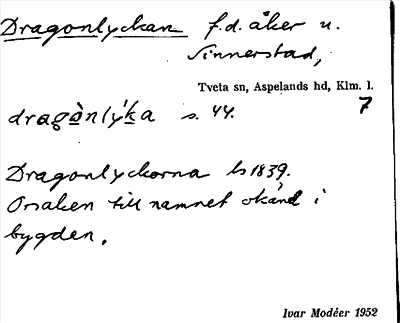 Dragonlyckan f.d. åker u.
Sinnerstad,
Tveta sn, Aspelands hd, Klm. l.
7
dragànlýka s. 44.
Dragonlyckorna ls 1839.
Orsaken till namnet okänd i
bygden.
Ivar Modéer 1952